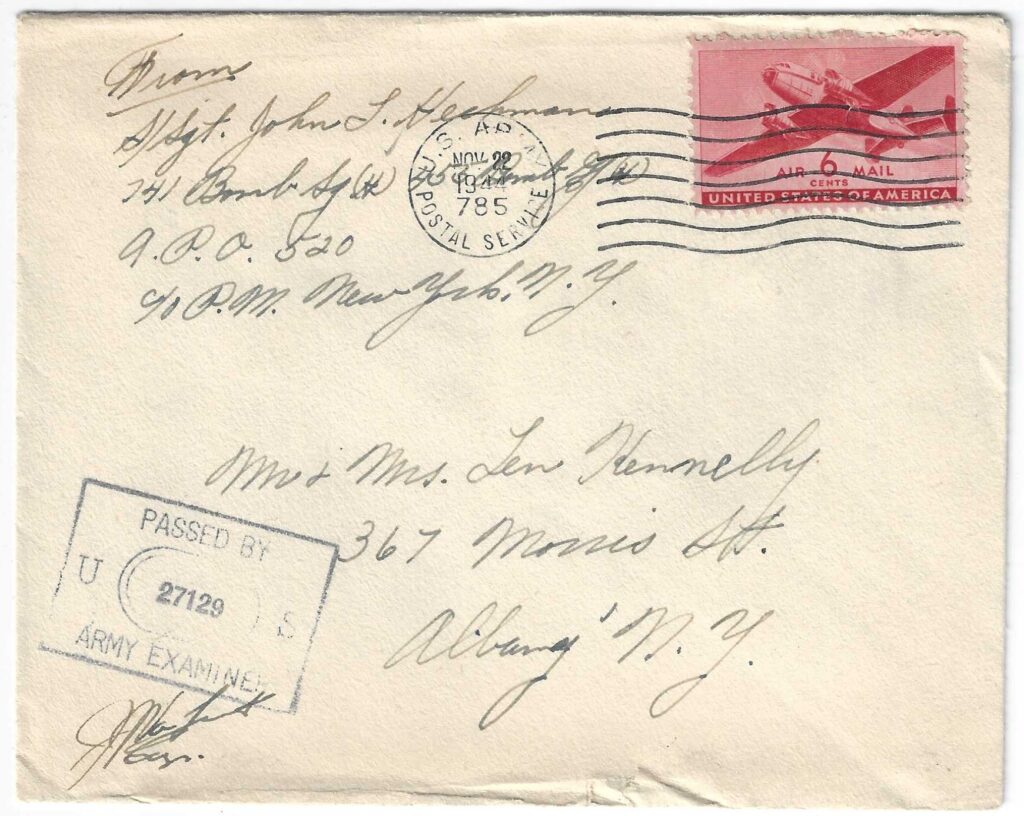 From
S/Sgt. John L. Heckmann
741 Bomb Sq (H) 455 Bomb Gp (H)
A.P.O. 520
c/o P.M. New York, N.Y.
U.S. ARMY
NOV 22
1944
785
POSTAL SERVICE
AIR 6 MAIL
CENTS
UNITED STATES OF AMERICA
Mr & Mrs. Len Kennelly
367 Morris St.
Albany, N.Y.
PASSED BY
U 27129 S
ARMY EXAMINER